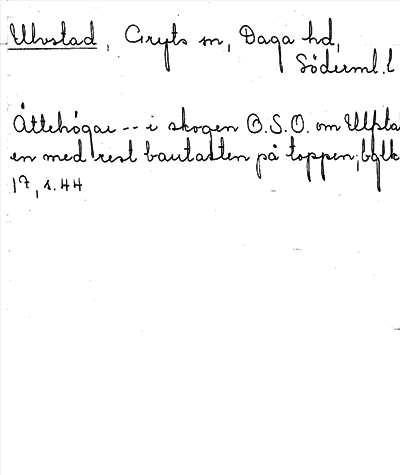 Ulvstad, Gryts sn, Daga hd,
Söderml. l
Ättehögar -- i skogen O.S.O. om Ulfsta
en med rest bautasten på toppen,
17, s. 44